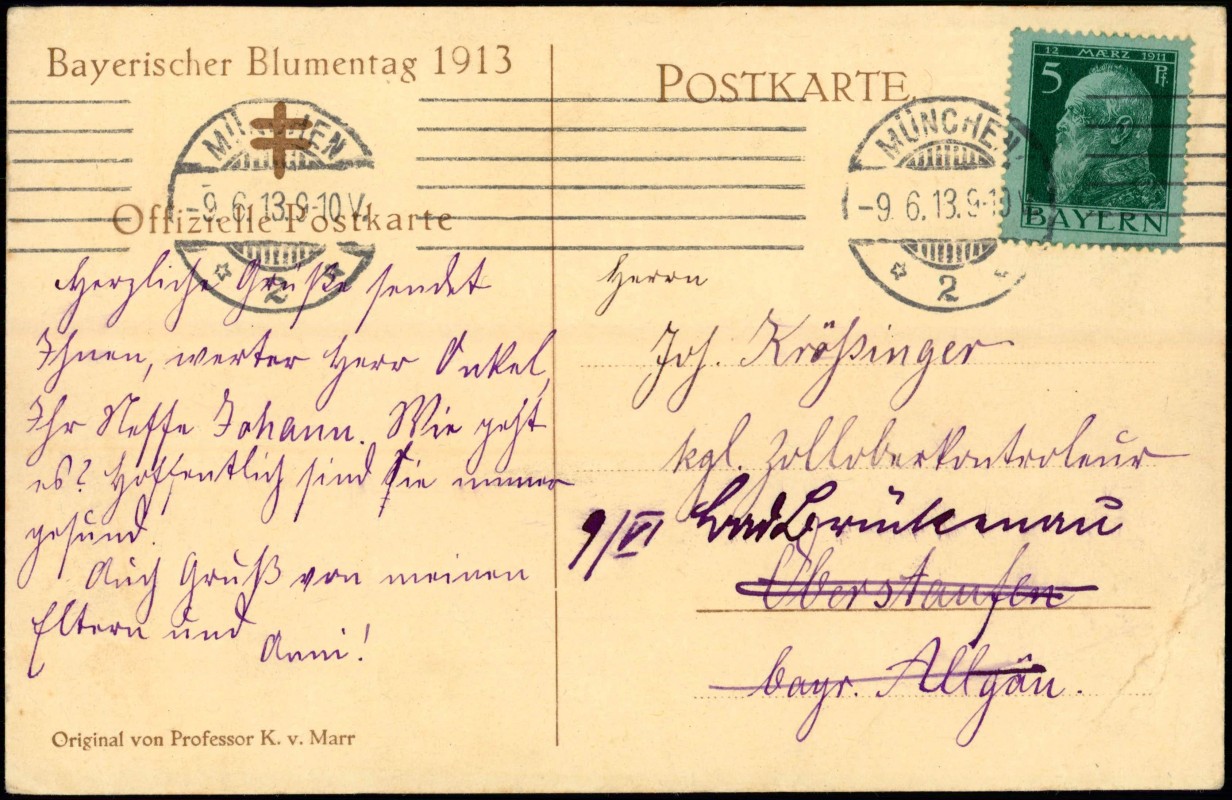 Bayerischer Blumentag 1913
Offizielle Postkarte
MÜNCHEN
-9.6.13.9-10V.
2
Herzliche Grüße sendet
Ihnen, werter Herr Onkel,
Ihr Neffe Johann. Wie geht
es? Hoffentlich sind Sie immer
gesund.
Auch Gruß von meinen
Eltern und
Anni!
Original von Professor K. v. Marr
POSTKARTE
MÜNCHEN
-9.6.13.9-10V.
2
12 MÆRZ 1911
5 Pf.
BAYERN
Herrn
Joh. Krößinger
kgl. Zolloberkontroleur
9/VI Bad Brückenau
Oberstaufen
bayr. Allgäu.